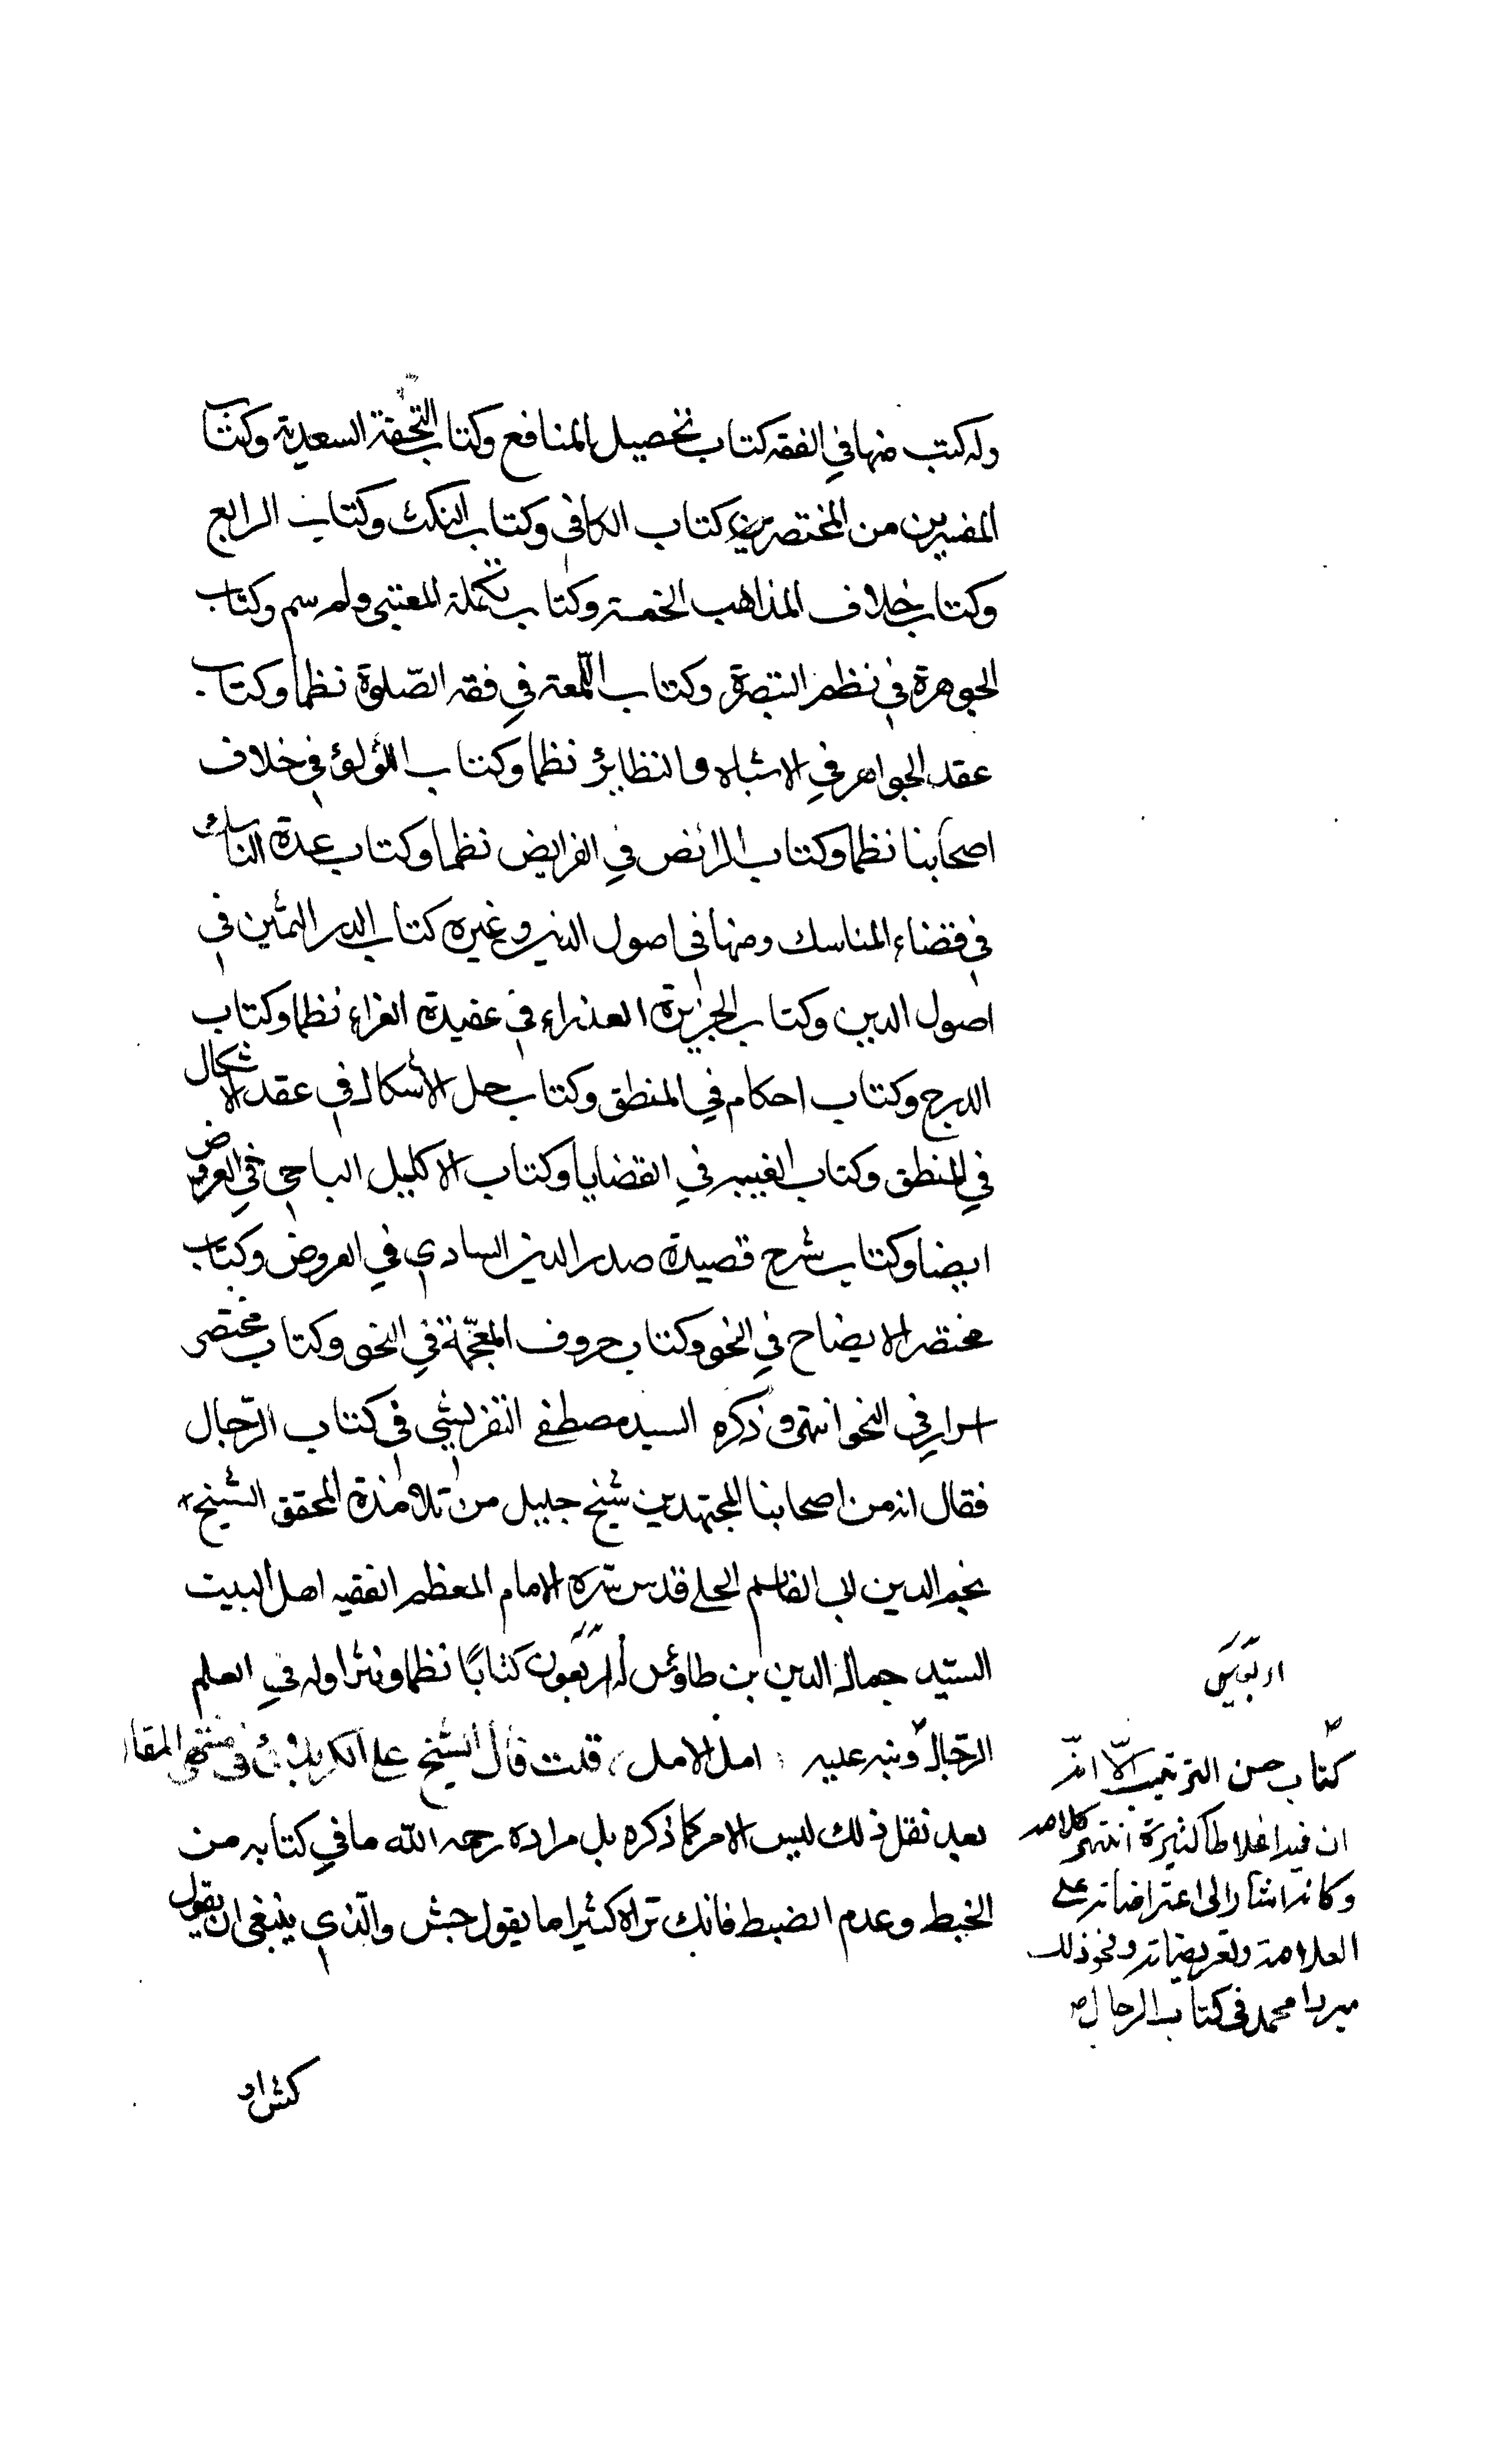 وله كتب منها في الفقه كتاب تحصيل المنافع وكتاب التحفة السعدية وكتاب
المفسرين من المختصرين كتاب الكافي وكتاب النكت وكتاب الرابع
وكتاب خلاف المذاهب الخمسة وكتاب تكملة المعتبى ولم سم وكتاب
الجوهرة في نظم التبصرة وكتاب اللمعة في فقه الصّلوة نظما وكتاب
عقد الجواهر في الاشباه والنظائر نظما وكتاب اللؤلؤ في خلاف
اصحابنا نظما وكتاب الرائض في الفرايض نظما وكتاب عدة الناسك
في قضاء المناسك ومنها في اصول الدين وغيره كتاب الدر الثمين في
اصول الدين وكتاب الجزيرة العذراء في عقيدة الغراء نظما وكتاب
الدرج وكتاب احكام في المنطق وكتاب حل الأسكال في عقد الاشكال
في المنطق وكتاب الغيبه في القضايا وكتاب الاكليل الباجي في العروض
ايضا وكتاب شرح قصيدة صدر الدين السادي في العروض وكتاب
مختصر الايضاح في النحو وكتاب حروف المعجمة في النحو وكتاب مختصر
اسرار في النحو انتهى وذكره السيد مصطفى التفريشي في كتاب الرّجال
فقال انه من اصحابنا المجتهدين شيخ جليل من تلامذة المحقق الشيخ
نجم الدين ابي القاسم الحلي قدس سره الامام المعظم الفقيه اهل البيت
السيّد جمال الدين بن طاوس له اربعون كتابًا نظما ونثرا وله في العلم
الرّجال ونبه عليه امل الامل قلت قال الشيخ علي الكربلائي في منتهى المقال
بعد نقل ذلك ليس الامر كما ذكره بل مراده رحمه الله ما في كتابه من
الخبط وعدم الضبط فانك تراه كثيرا ما يقول جش والّذي ينبغي ان يقول
كش او
كتاب حسن الترتيب الّا انّه
ان فيه اغلاطا كثيرة انتهى كلامه
وكانه اشار الى اعتراضاته على
العلامة وتعريضاته ونحو ذلك
ميرزا محمد في كتاب الرجال